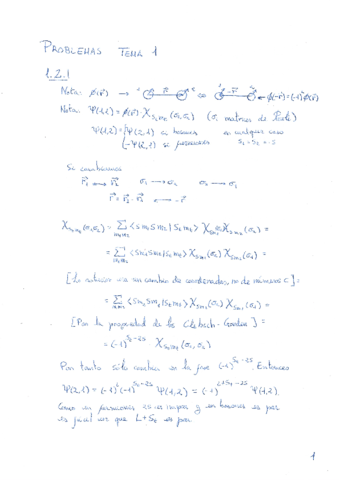 PROBLEMAS TEMA 1
1.2.1
Nota: φ(r⃗) → r⃗ ⇔ -r⃗ φ(-r⃗)=(-1)^L φ(r⃗)
Nota: Ψ(1,2)=φ(r⃗) χ_{S_T m_T}(σ₁,σ₂) (σᵢ matrices de Pauli)
Ψ(1,2)= { Ψ(2,1) si bosones en cualquier caso
-Ψ(2,1) si fermiones S₁=S₂=S
Si cambiamos
r⃗₁ ↔ r⃗₂ σ₁→σ₂ σ₂→σ₁
r⃗=r⃗₁-r⃗₂ ↔ -r⃗
χ_{S_T m_T}(σ₁,σ₂) = Σ_{m₁m₂} <S m₁ S m₂|S_T m_T> χ_{Sm₁}(σ₁) χ_{Sm₂}(σ₂) =
= Σ_{m₁m₂} <S m₁ S m₂|S_T m_T> χ_{Sm₁}(σ₂) χ_{Sm₂}(σ₁) =
[La rotación es un cambio de coordenadas, no de números C] =
= Σ_{m₁m₂} <S m₂ S m₁|S_T m_T> χ_{Sm₂}(σ₁) χ_{Sm₁}(σ₂) =
[Por la propiedad de los Clebsch-Gordan] =
= (-1)^{S_T-2S} χ_{S_T m_T}(σ₁,σ₂)
Por tanto sólo cambia en la fase (-1)^{S_T-2S}. Entonces
Ψ(2,1) = (-1)^L (-1)^{S_T-2S} Ψ(1,2) = (-1)^{L+S_T-2S} Ψ(1,2).
Como en fermiones 2S es impar y en bosones es par
es fácil ver que L+S_T es par.
1